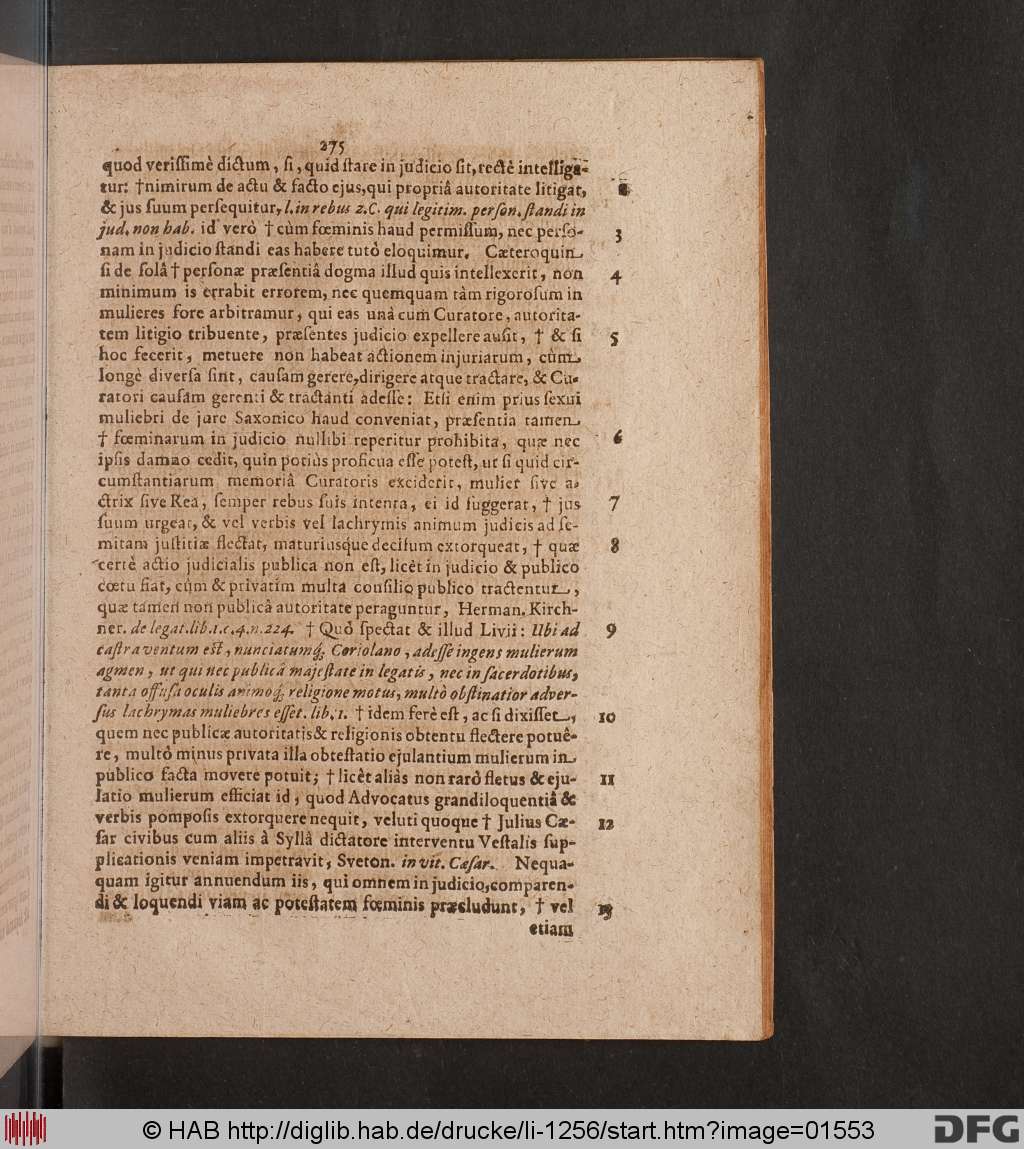 275
quod verissimè dictum, si, quid stare in judicio sit, rectè intelliga-
tur: †nimirum de actu & facto ejus, qui propriâ autoritate litigat,
& jus suum persequitur, l. in rebus 2. C. qui legitim. person. standi in
jud. non hab. id verò † cùm fœminis haud permissum, nec perso- 3
nam in judicio standi eas habere tutò eloquimur. Cæteroquin
si de solâ † personæ præsentiâ dogma illud quis intellexerit, non 4
minimum is errabit errorem, nec quemquam tàm rigorosum in
mulieres fore arbitramur, qui eas unà cum Curatore, autorita-
tem litigio tribuente, præsentes judicio expellere ausit, † & si 5
hoc fecerit, metuere non habeat actionem injuriarum, cùm
longè diversa sint, causam gerere, dirigere atque tractare, & Cu-
ratori causam gerenti & tractanti adesse: Etsi enim prius sexui
muliebri de jure Saxonico haud conveniat, præsentia tamen
† fœminarum in judicio nullibi reperitur prohibita, quæ nec 6
ipsis damno cedit, quin potiùs proficua esse potest, ut si quid cir-
cumstantiarum memoriâ Curatoris exciderit, mulier sive a-
ctrix sive Rea, semper rebus suis intenta, ei id suggerat, † jus 7
suum urgeat, & vel verbis vel lachrymis animum judicis ad se-
mitam justitiæ flectat, maturiusque decisum extorqueat, † quæ 8
certè actio judicialis publica non est, licèt in judicio & publico
cœtu fiat, cùm & privatim multa consilio publico tractentur,
quæ tamen non publicâ autoritate peraguntur, Herman. Kirch-
ner. de legat. lib. 1. c. 4. n. 224. † Quò spectat & illud Livii: Ubi ad 9
castra ventum est, nunciatumq́; Coriolano, adesse ingens mulierum
agmen, ut qui nec publicâ majestate in legatis, nec in sacerdotibus,
tanta offusa oculis animoq́; religione motus, multò obstinatior adver-
sus lachrymas muliebres esset. lib. 1. † idem ferè est, ac si dixisset, 10
quem nec publicæ autoritatis & religionis obtentu flectere potuê-
re, multò minus privata illa obtestatio ejulantium mulierum in
publico facta movere potuit; † licèt aliàs non rarò fletus & eju- 11
latio mulierum efficiat id, quod Advocatus grandiloquentiâ &
verbis pomposis extorquere nequit, veluti quoque † Julius Cæ- 12
sar civibus cum aliis à Syllâ dictatore interventu Vestalis sup-
plicationis veniam impetravit, Sveton. in vit. Cæsar. Nequa-
quam igitur annuendum iis, qui omnem in judicio, comparen-
di & loquendi viam ac potestatem fœminis præcludunt, † vel 13
etiam
© HAB http://diglib.hab.de/drucke/li-1256/start.htm?image=01553
DFG